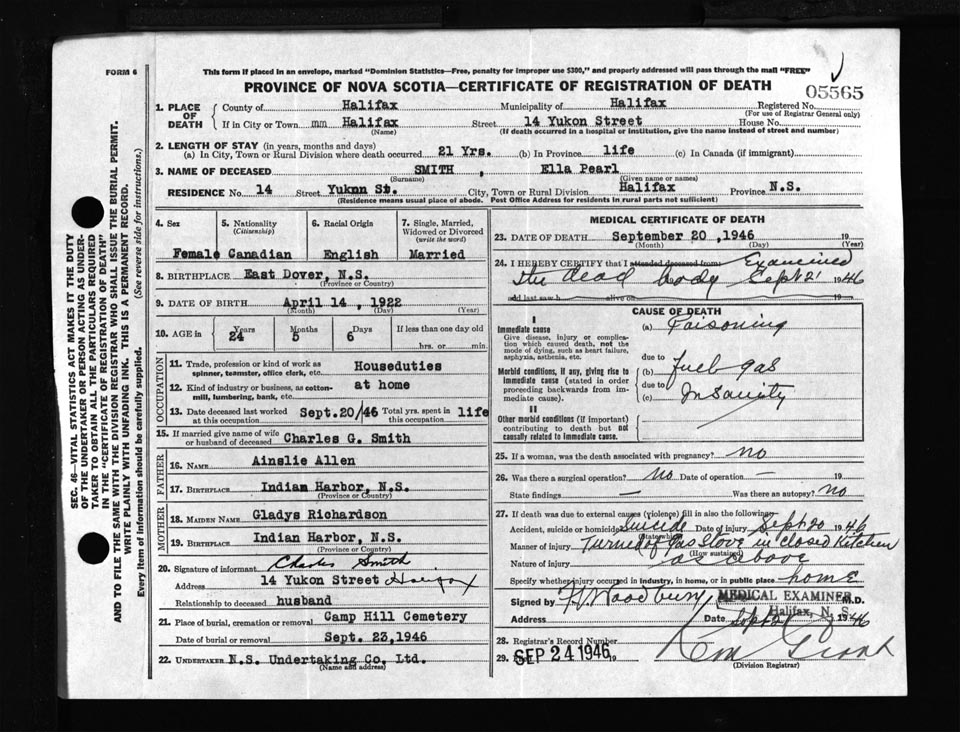 FORM 6
This form if placed in an envelope, marked "Dominion Statistics—Free, penalty for improper use $300," and properly addressed will pass through the mail "FREE"
PROVINCE OF NOVA SCOTIA—CERTIFICATE OF REGISTRATION OF DEATH
05565
1. PLACE OF DEATH
County of Halifax Municipality of Halifax Registered No.
(For use of Registrar General only)
If in City or Town mm Halifax Street 14 Yukon Street House No.
(Name) (If death occurred in a hospital or institution, give the name instead of street and number)
2. LENGTH OF STAY (in years, months and days)
(a) In City, Town or Rural Division where death occurred 21 Yrs. (b) In Province life (c) In Canada (if immigrant)
3. NAME OF DECEASED SMITH , Ella Pearl
(Surname) (Given name or names)
RESIDENCE No. 14 Street Yukon St. City, Town or Rural Division Halifax Province N.S.
(Residence means usual place of abode. Post Office Address for residents in rural parts not sufficient)
4. Sex 5. Nationality (Citizenship) 6. Racial Origin 7. Single, Married, Widowed or Divorced (write the word)
Female Canadian English Married
8. BIRTHPLACE East Dover, N.S.
(Province or Country)
9. DATE OF BIRTH April 14 , 1922
(Month) (Day) (Year)
10. AGE in Years Months Days If less than one day old
24 5 6 hrs. or min.
OCCUPATION
11. Trade, profession or kind of work as spinner, teamster, office clerk, etc. Houseduties
12. Kind of industry or business, as cotton-mill, lumbering, bank, etc. at home
13. Date deceased last worked at this occupation Sept.20/46 Total yrs. spent in this occupation life
15. If married give name of wife or husband of deceased Charles G. Smith
FATHER
16. NAME Ainslie Allen
17. BIRTHPLACE Indian Harbor, N.S.
(Province or Country)
MOTHER
18. MAIDEN NAME Gladys Richardson
19. BIRTHPLACE Indian Harbor, N.S.
(Province or Country)
20. Signature of informant Charles Smith
Address 14 Yukon Street Halifax
Relationship to deceased husband
21. Place of burial, cremation or removal Camp Hill Cemetery
Date of burial or removal Sept. 23,1946
22. UNDERTAKER N.S. Undertaking Co. Ltd.
(Name and address)
MEDICAL CERTIFICATE OF DEATH
23. DATE OF DEATH September 20 ,1946 19
(Month) (Day) (Year)
24. I HEREBY CERTIFY that I attended deceased from: Examined
the dead body Sept 21 1946
and last saw h alive on 19
CAUSE OF DEATH
I
Immediate cause (a) Poisoning
Give disease, injury or complication which caused death, not the mode of dying, such as heart failure, asphyxia, asthenia, etc.
due to
Morbid conditions, if any, giving rise to immediate cause (stated in order proceeding backwards from immediate cause).
(b) fuel gas
due to
(c) Insanity
II
Other morbid conditions (if important) contributing to death but not causally related to immediate cause.
25. If a woman, was the death associated with pregnancy? no
26. Was there a surgical operation? no Date of operation —
State findings — Was there an autopsy? no
27. If death was due to external causes (violence) fill in also the following:
Accident, suicide or homicide? Suicide Date of injury Sept 20 1946
(State which)
Manner of injury Turned of gas Stove in closed Kitchen
(How sustained)
Nature of injury as above
Specify whether injury occurred in industry, in home, or in public place home
Signed by Woodbury MEDICAL EXAMINER M.D.
Halifax, N. S.
Address Date Sept 21 1946
28. Registrar's Record Number
29. SEP 24 1946 19
(Division Registrar)
SEC. 46—VITAL STATISTICS ACT MAKES IT THE DUTY
OF THE UNDERTAKER OR PERSON ACTING AS UNDER-
TAKER TO OBTAIN ALL THE PARTICULARS REQUIRED
IN THE "CERTIFICATE OF REGISTRATION OF DEATH"
AND TO FILE THE SAME WITH THE DIVISION REGISTRAR WHO SHALL ISSUE THE BURIAL PERMIT.
WRITE PLAINLY WITH UNFADING INK. THIS IS A PERMANENT RECORD.
Every item of Information should be carefully supplied. (See reverse side for instructions.)